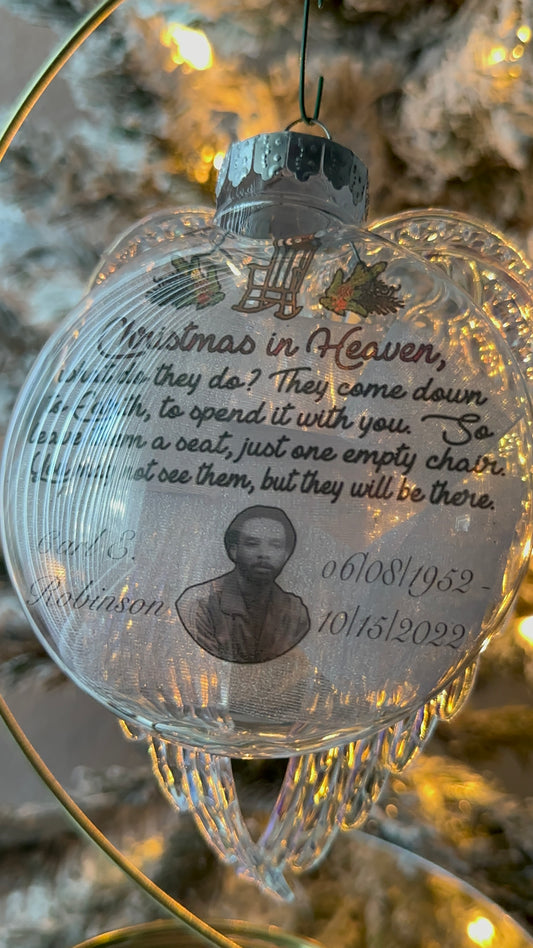 Christmas in Heaven,
what do they do? They come down
to Earth, to spend it with you. So
leave them a seat, just one empty chair.
You may not see them, but they will be there.
Carl E.
Robinson
06/08/1952 -
10/15/2022